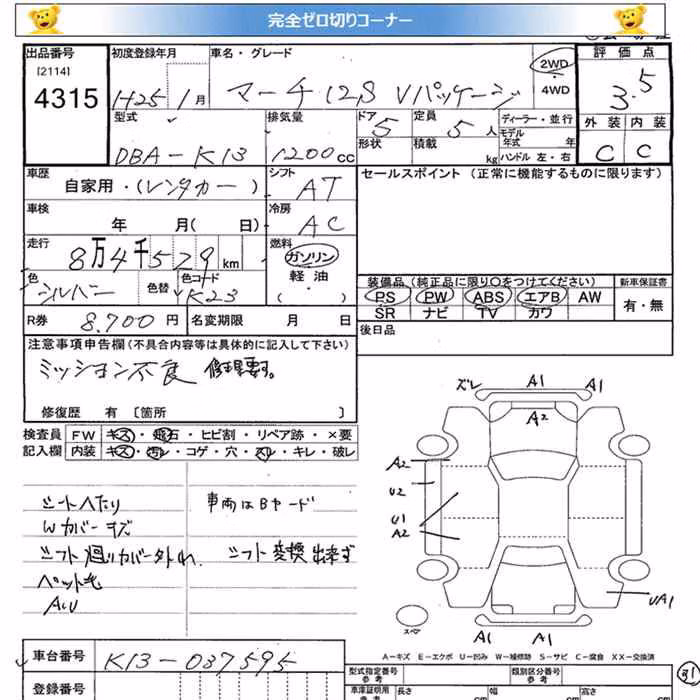 完全ゼロ切りコーナー
出品番号 初度登録年月 車名・グレード 2WD 評価点
[2114] ・
4315 H25 1月 マーチ 12S Vパッケージ 4WD 3.5
型式 排気量 ドア 5 定員 5人 ディーラー・並行 外装 内装
モデル年式 年
DBA-K13 1200cc 形状 積載 kg ハンドル 左・右 C C
車歴 シフト セールスポイント (正常に機能するものに限ります)
自家用・(レンタカー) AT
車検 冷房
年 月( 日) AC
走行 燃料
8万4千529km ガソリン
色 色替 色コード 軽油 装備品 (純正品に限り○をつけてください) 新車保証書
シルバー K23 ・( ) PS PW ABS エアB AW 有・無
SR ナビ TV カワ
R券 8,700円 名変期限 月 日 後日品
注意事項申告欄(不具合内容等は具体的に記入して下さい)
ミッション不良 修理要す。
修復歴 有 〔箇所 〕
検査員 FW キズ・飛石・ヒビ割・リペア跡・×要
記入欄 内装 キズ・汚レ・コゲ・穴・スレ・キレ・破レ
シートへたり 車両はBヤード
Wカバーキズ
シフト廻りカバー外れ、シフト変換出来ず
ペット毛
AU
ズレ A1 A1
A2
A2
U2
U1
A2
UA1
スペア A1 A1
A-キズ E-エクボ U-凹み W-補修跡 S-サビ C-腐食 XX-交換済
車台番号 K13-037595
型式指定番号 参考 類別区分番号 参考 91
登録番号 車庫証明用 参考 長さ cm 幅 cm 高さ cm